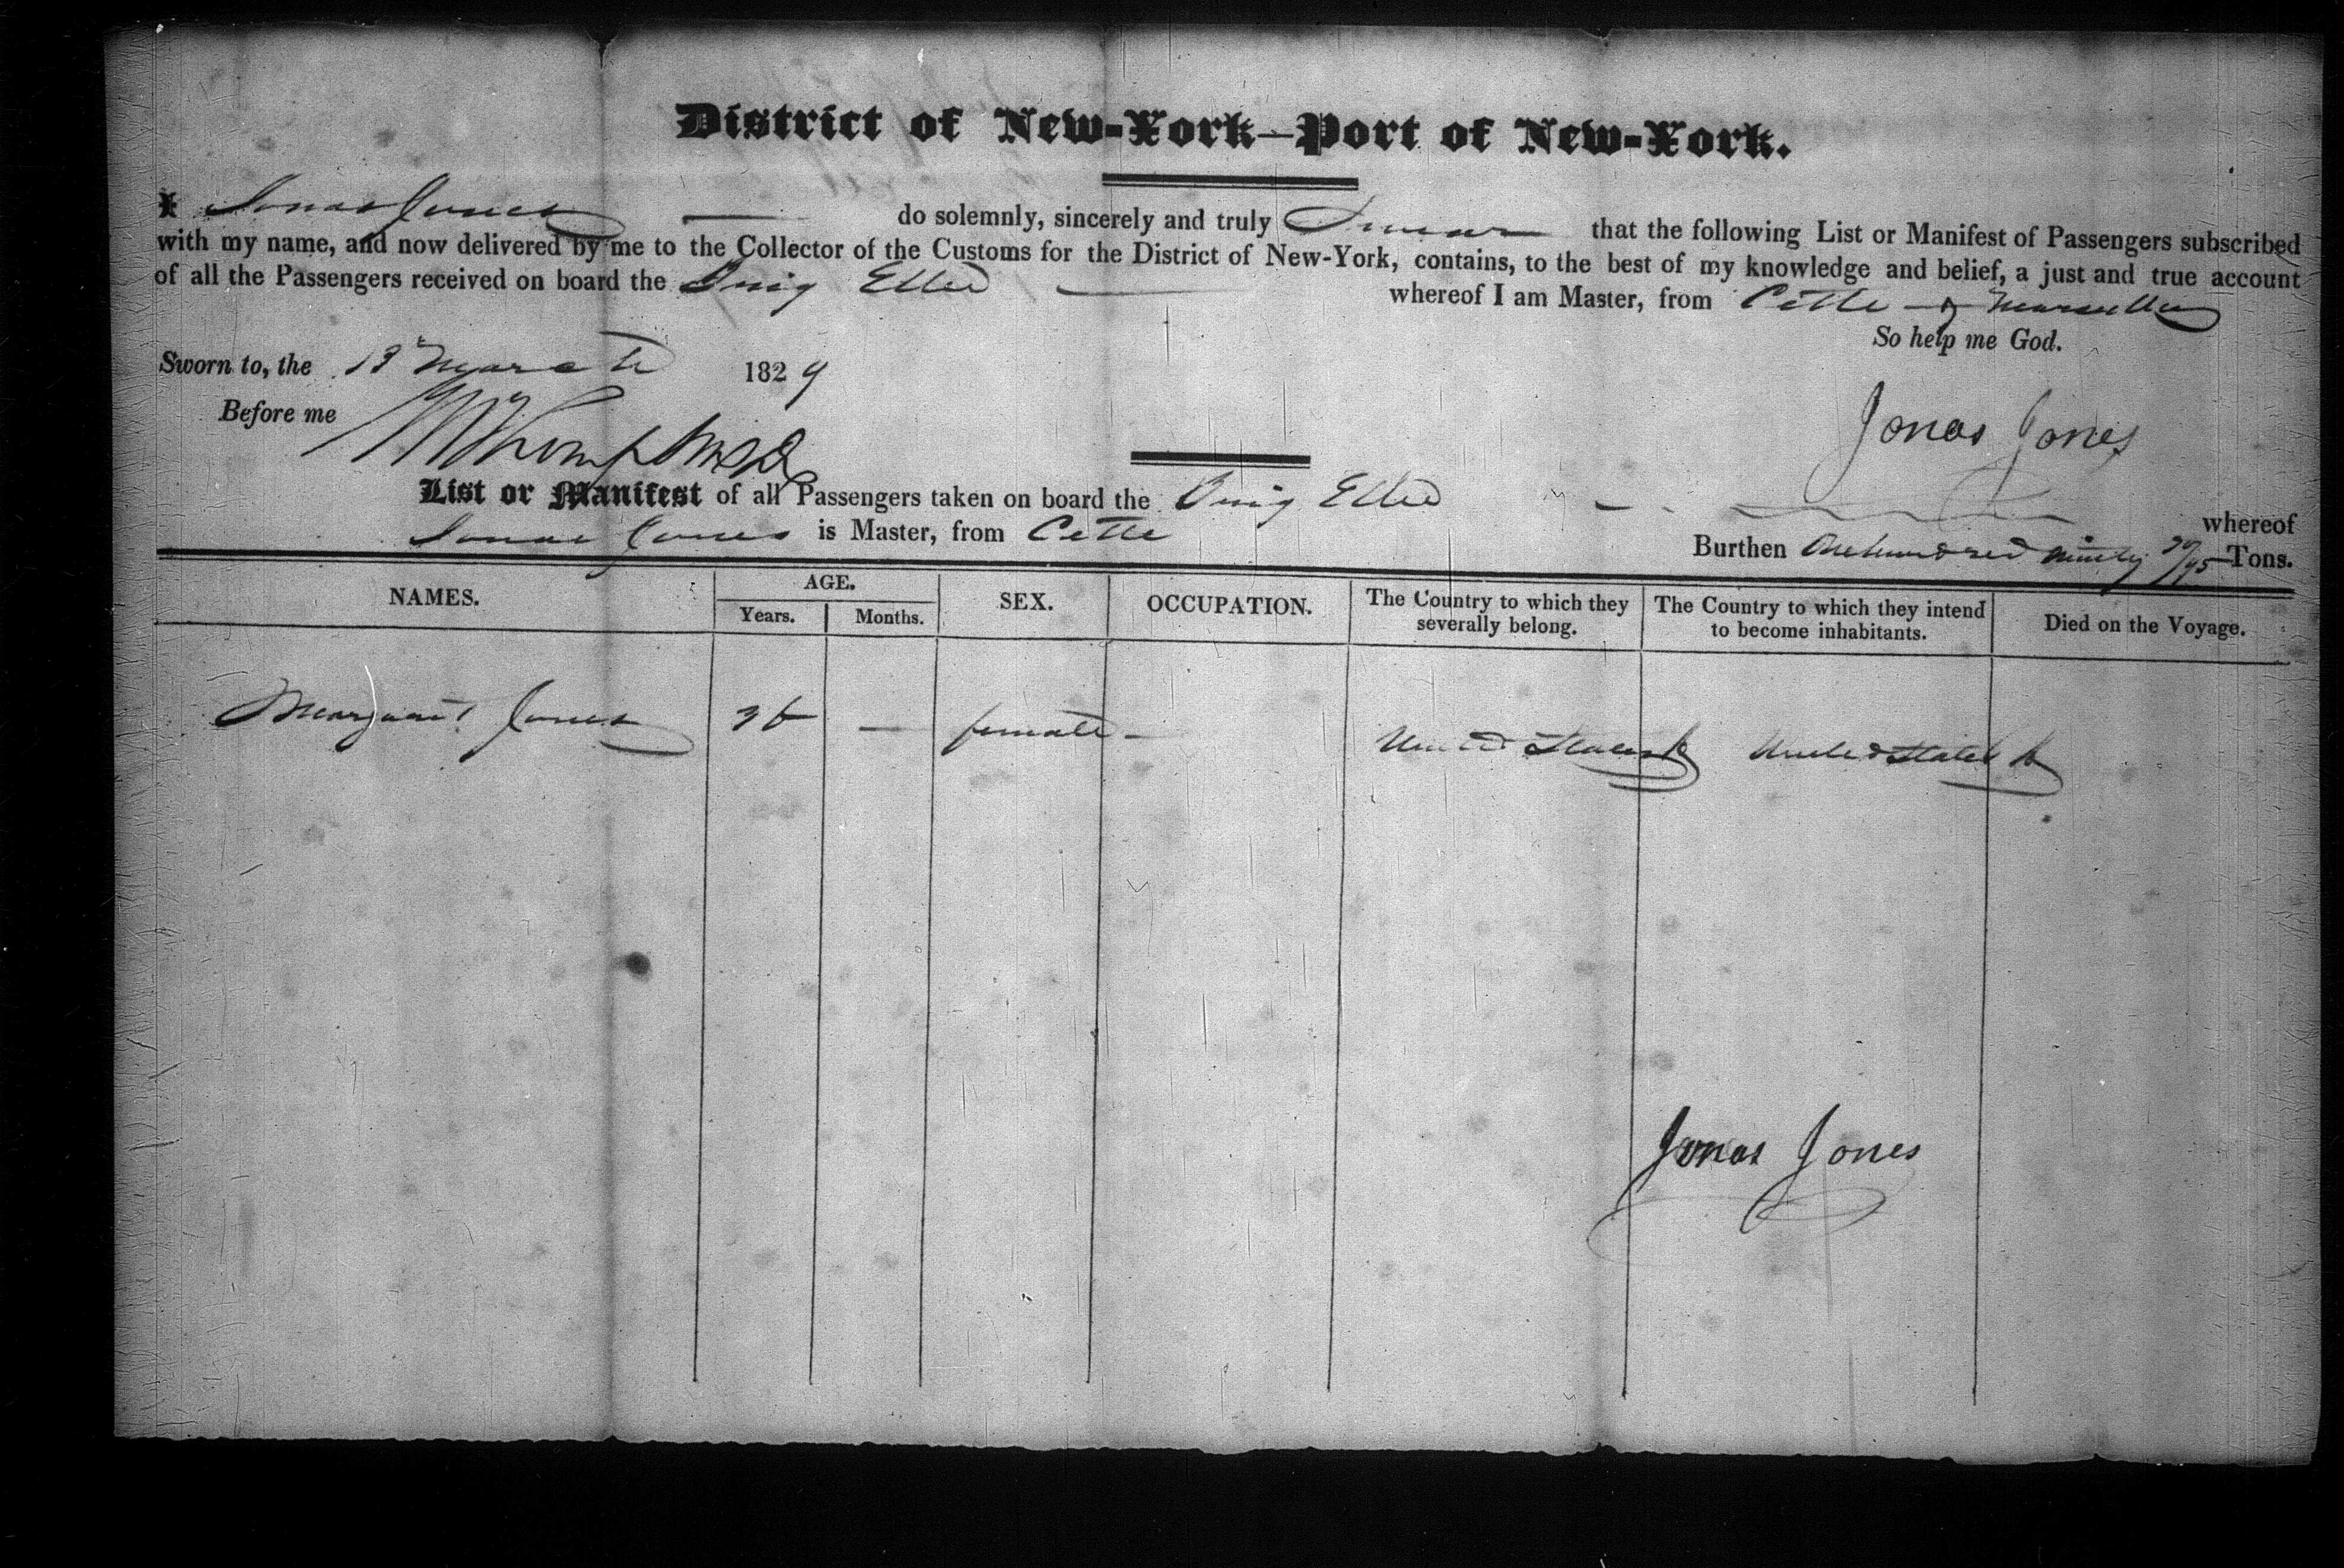 District of New-York—Port of New-York.
I Jonas Jones do solemnly, sincerely and truly Swear that the following List or Manifest of Passengers subscribed
with my name, and now delivered by me to the Collector of the Customs for the District of New-York, contains, to the best of my knowledge and belief, a just and true account
of all the Passengers received on board the Brig whereof I am Master, from Cette & Marseilles
So help me God.
Sworn to, the 13 March 1829
Before me
Jonas Jones
List or Manifest of all Passengers taken on board the Brig whereof
Jonas Jones is Master, from Cette Burthen One hundred ninety /95 Tons.
NAMES. AGE. Years. Months. SEX. OCCUPATION. The Country to which they severally belong. The Country to which they intend to become inhabitants. Died on the Voyage.
Margaret Jones — female - United States United States
Jonas Jones